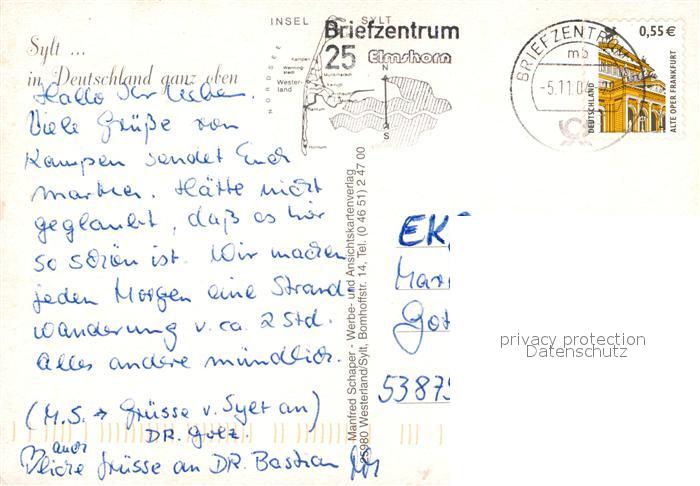 INSEL SYLT
Sylt ...
in Deutschland ganz oben
NORDSEE
Kampen
Westerland
Rantum
Hörnum
N
S
Briefzentrum
25 Elmshorn
BRIEFZENTRUM
mb
-5.11.04
0,55 €
DEUTSCHLAND
ALTE OPER FRANKFURT
Hallo Ihr Lieben.
Viele Grüße von
Kampen sendet Euch
. Hätte nicht
geglaubt, daß es hier
so schön ist. Wir machen
jeden Morgen eine Strand
wanderung v. ca. 2 Std.
Alles andere mündlich.
(M.S. → Grüsse v. Sylt an)
DR. Golz.
auch
Grüsse an DR. Bastian
Manfred Schaper - Werbe- und Ansichtskartenverlag
25980 Westerland/Sylt, Bomhoffstr. 14, Tel. (0 46 51) 2 47 00
EK
Mar
Got
53875
privacy protection
Datenschutz